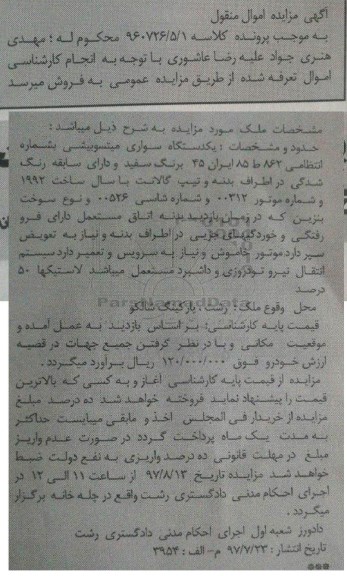 آگهی مزایده اموال منقول
به موجب پرونده کلاسه ۹۶۰۷۲۶/۵/۱ محکوم له : مهدی
هنری جواد علیه رضا عاشوری با توجه به انجام کارشناسی
اموال تعرفه شده از طریق مزایده عمومی به فروش میرسد
مشخصات ملک مورد مزایده به شرح ذیل میباشد :
حدود و مشخصات : یکدستگاه سواری میتسوبیشی بشماره
انتظامی ۸۶۲ ط ۸۵ ایران ۴۵ برنگ سفید و دارای سابقه رنگ
شدگی در اطراف بدنه و تیپ گالانت با سال ساخت ۱۹۹۲
و شماره موتور ۰۰۳۱۲ و شماره شاسی ۰۰۵۲۶ و نوع سوخت
بنزین که در زمان بازدید بدنه اتاق مستعمل دارای فرو
رفتگی و خوردگیهای جزیی در اطراف بدنه و نیاز به تعویض
سپر دارد موتور خاموش و نیاز به سرویس و تعمیر دارد سیستم
انتقال نیرو توفروزی و داشبرد مستعمل میباشد لاستیکها ۵۰
درصد
محل وقوع ملک : رشت . پارکینگ شالکو
قیمت پایه کارشناسی: بر اساس بازدید به عمل آمده و
موقعیت مکانی و با در نظر گرفتن جمیع جهات در قضیه
ارزش خودرو فوق ۱۲۰/۰۰۰/۰۰۰ ریال برآورد میگردد .
مزایده از قیمت پایه کارشناسی آغاز و به کسی که بالاترین
قیمت را پیشنهاد نماید فروخته خواهد شد ده درصد مبلغ
مزایده از خریدار فی المجلس اخذ و مابقی میبایست حداکثر
به مدت یک ماه پرداخت گردد در صورت عدم واریز
مبلغ در مهلت قانونی ده درصد واریزی به نفع دولت ضبط
خواهد شد مزایده تاریخ ۹۷/۸/۱۳ از ساعت ۱۱ الی ۱۲ در
اجرای احکام مدنی دادگستری رشت واقع در چله خانه برگزار
میگردد .
دادورز شعبه اول اجرای احکام مدنی دادگستری رشت
تاریخ انتشار : ۹۷/۷/۲۳ م- الف : ۳۹۵۴